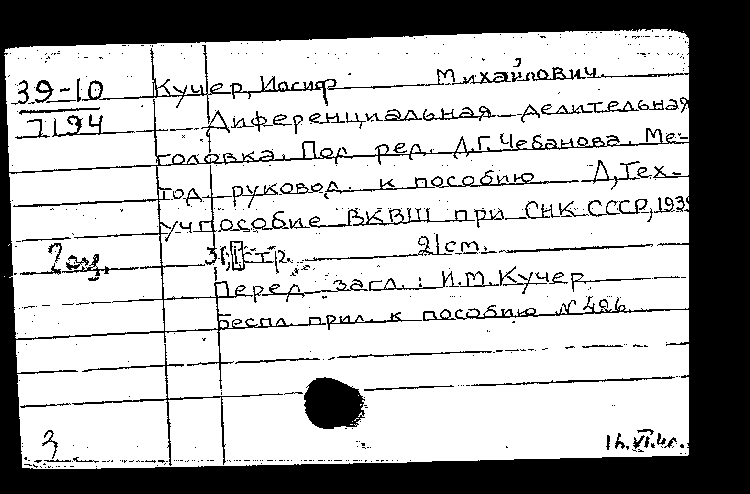 39-10
7194
Кучер, Иосиф Михайлович.
Диференциальная делительная
головка. Под ред. Д.Г. Чебанова. Ме-
тод руковод. к пособию Л, Тех-
учпособие ВКВШ при СНК СССР, 1939
2 экз. 31, [1] стр. 21 см.
Перед загл.: И.М. Кучер
Беспл. прил. к пособию № 426.
3
16.VI.40.